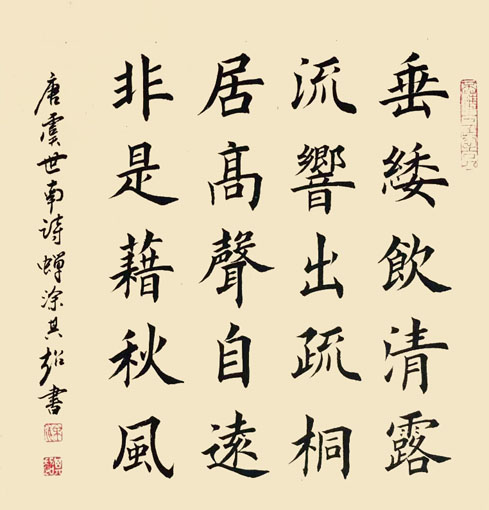 垂緌飲清露
流響出疏桐
居高聲自遠
非是藉秋風
唐虞世南诗蟬涂其超書